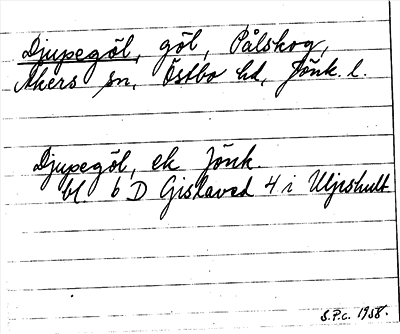 Djupegöl, göl, Pålskog,
Åkers sn, Östbo hd, Jönk. l.
Djupegöl, ek Jönk.
bl 6 D Gislaved 4 i Uljeshult
S.P.C. 1958.